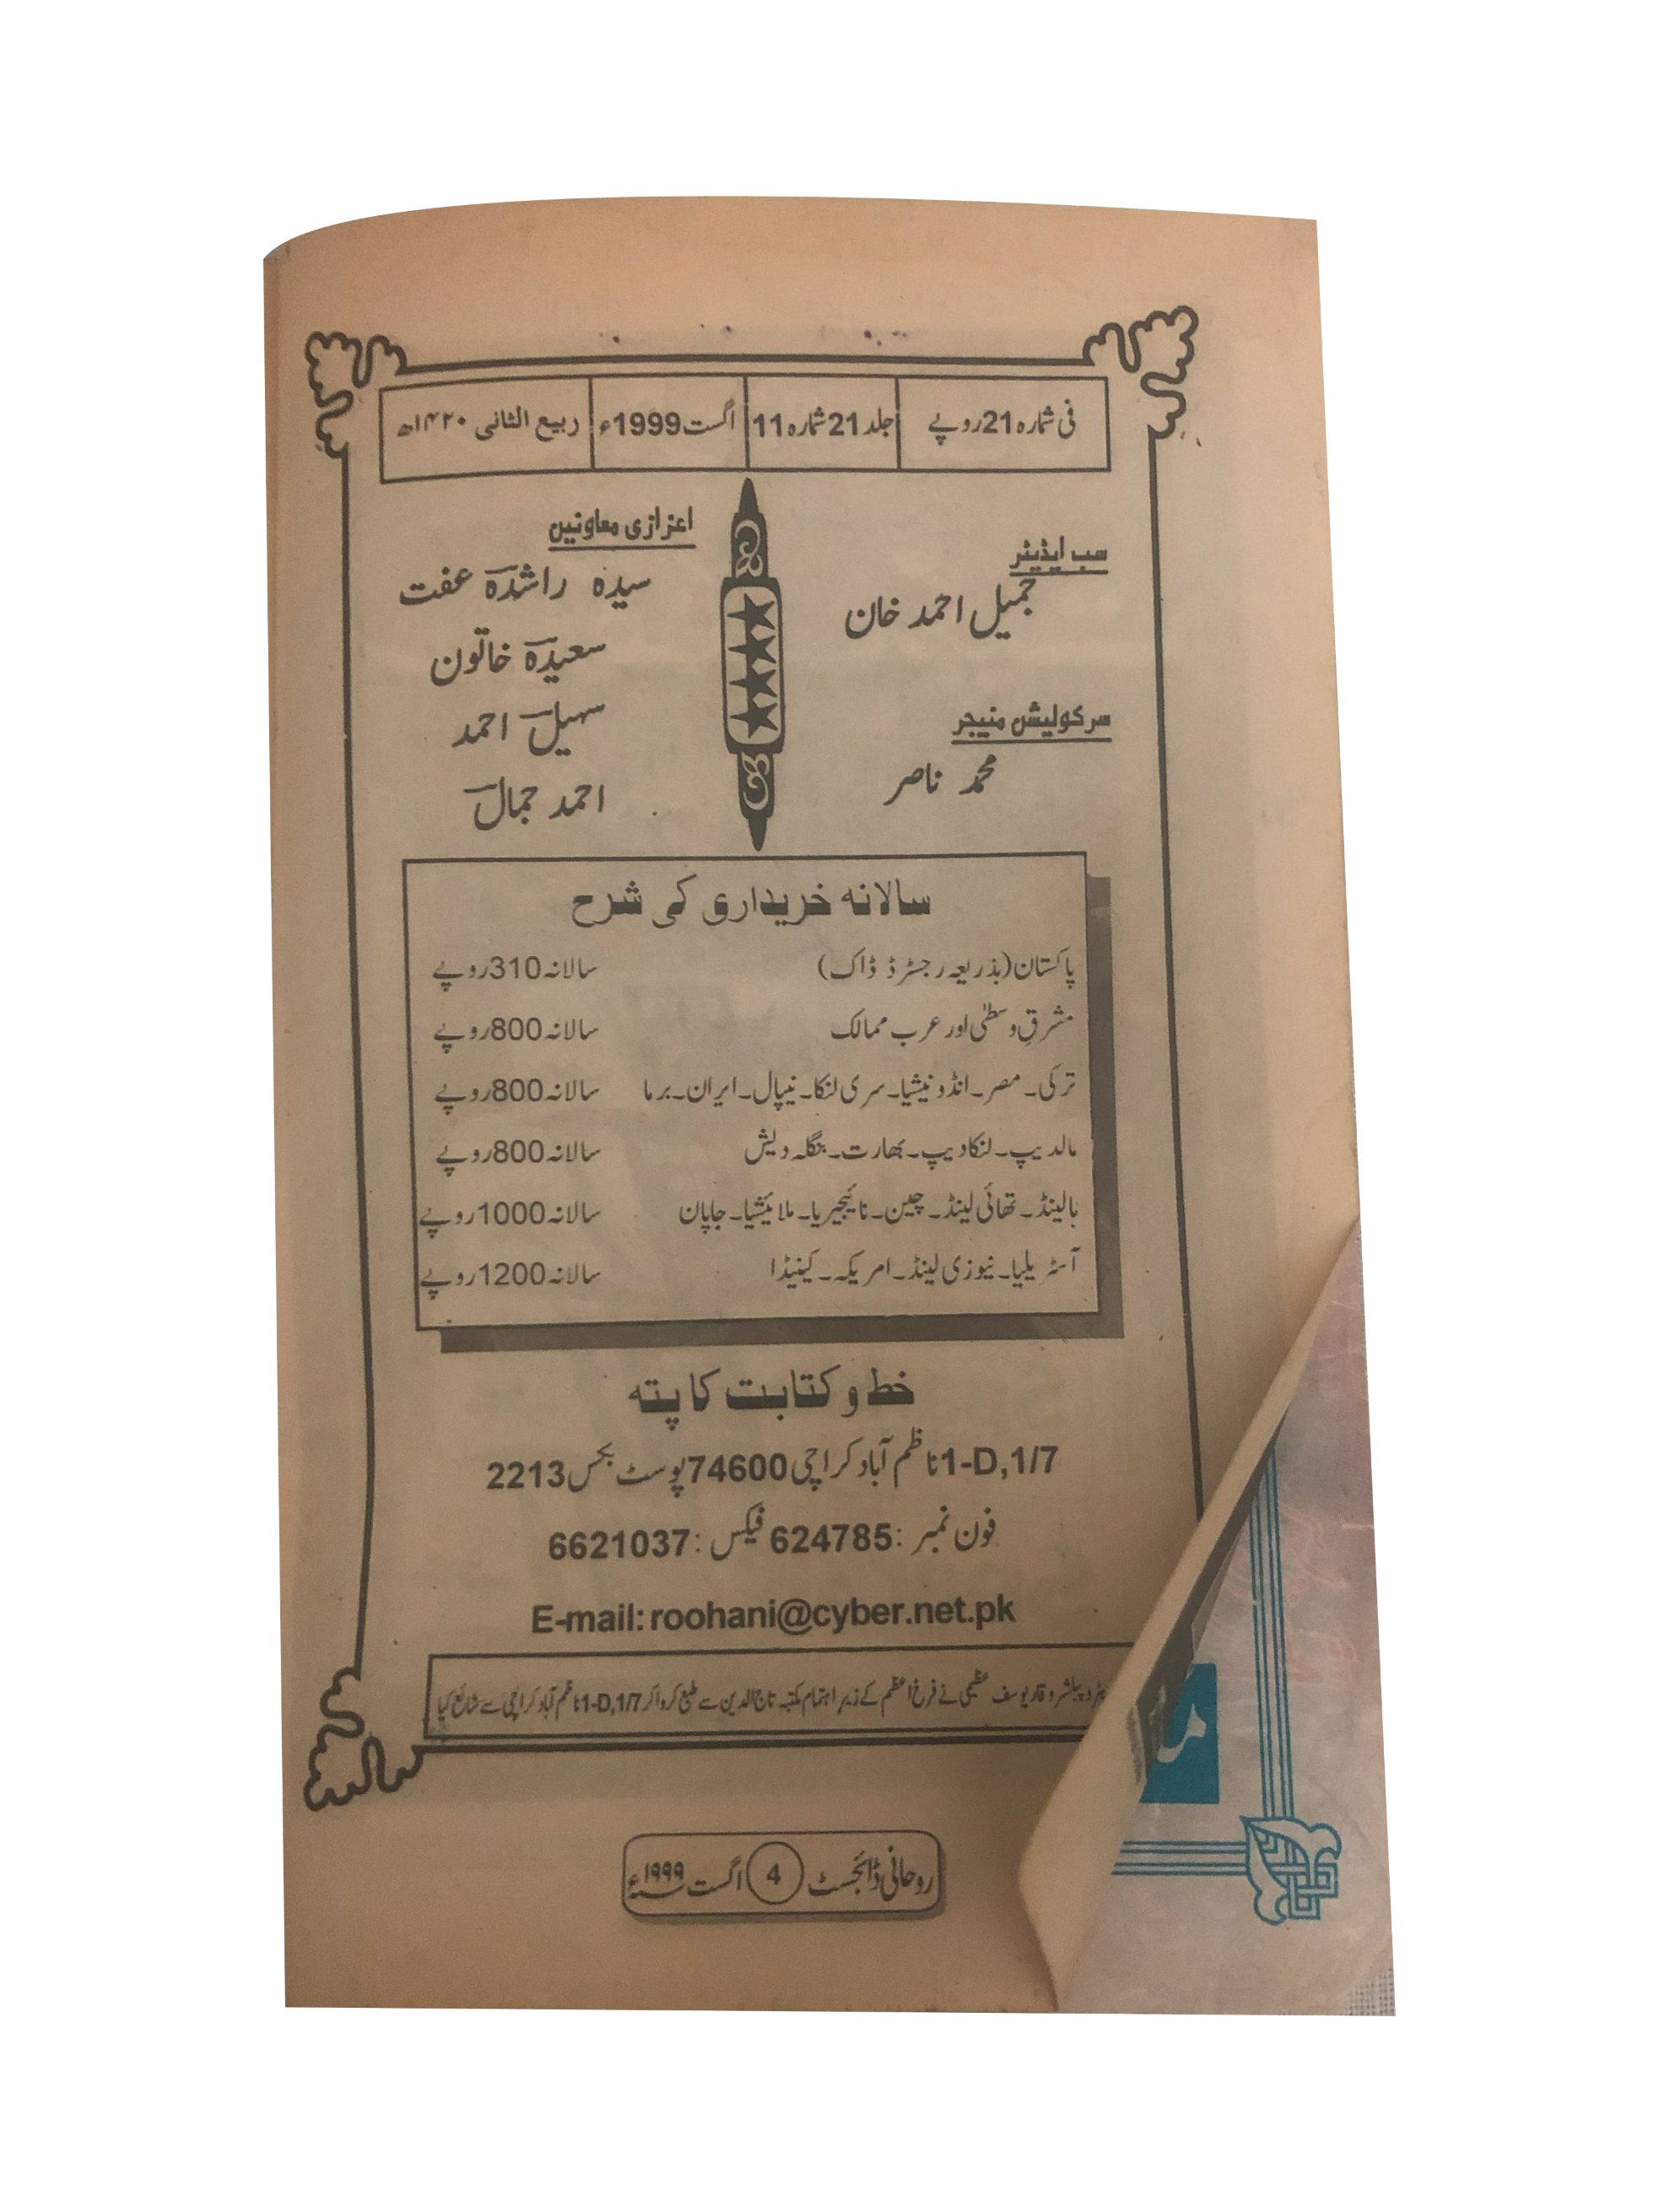 فی شمارہ 21 روپے
جلد 21 شمارہ 11
اگست 1999ء
ربیع الثانی ۱۴۲۰ھ
سب ایڈیٹر
جمیل احمد خان
سرکولیشن منیجر
محمد ناصر
اعزازی معاونین
سیدہ راشدہ عفت
سعیدہ خاتون
سہیل احمد
احمد جمال
سالانہ خریداری کی شرح
پاکستان (بذریعہ رجسٹرڈ ڈاک) سالانہ 310 روپے
مشرقِ وسطیٰ اور عرب ممالک سالانہ 800 روپے
ترکی۔ مصر۔ انڈونیشیا۔ سری لنکا۔ نیپال۔ ایران۔ برما سالانہ 800 روپے
مالدیپ۔ لنکادیپ۔ بھارت۔ بنگلہ دیش سالانہ 800 روپے
ہالینڈ۔ تھائی لینڈ۔ چین۔ نائیجیریا۔ ملائیشیا۔ جاپان سالانہ 1000 روپے
آسٹریلیا۔ نیوزی لینڈ۔ امریکہ۔ کینیڈا سالانہ 1200 روپے
خط و کتابت کا پتہ
1-D,1/7 ناظم آباد کراچی 74600 پوسٹ بکس 2213
فون نمبر : 624785 فیکس : 6621037
E-mail: roohani@cyber.net.pk
پبلشر وقار یوسف عظیمی نے فرخ اعظم کے زیرِ اہتمام مکتبہ تاج الدین سے طبع کرواکر 1-D,1/7 ناظم آباد کراچی سے شائع کیا
روحانی ڈائجسٹ 4 اگست ۱۹۹۹ء